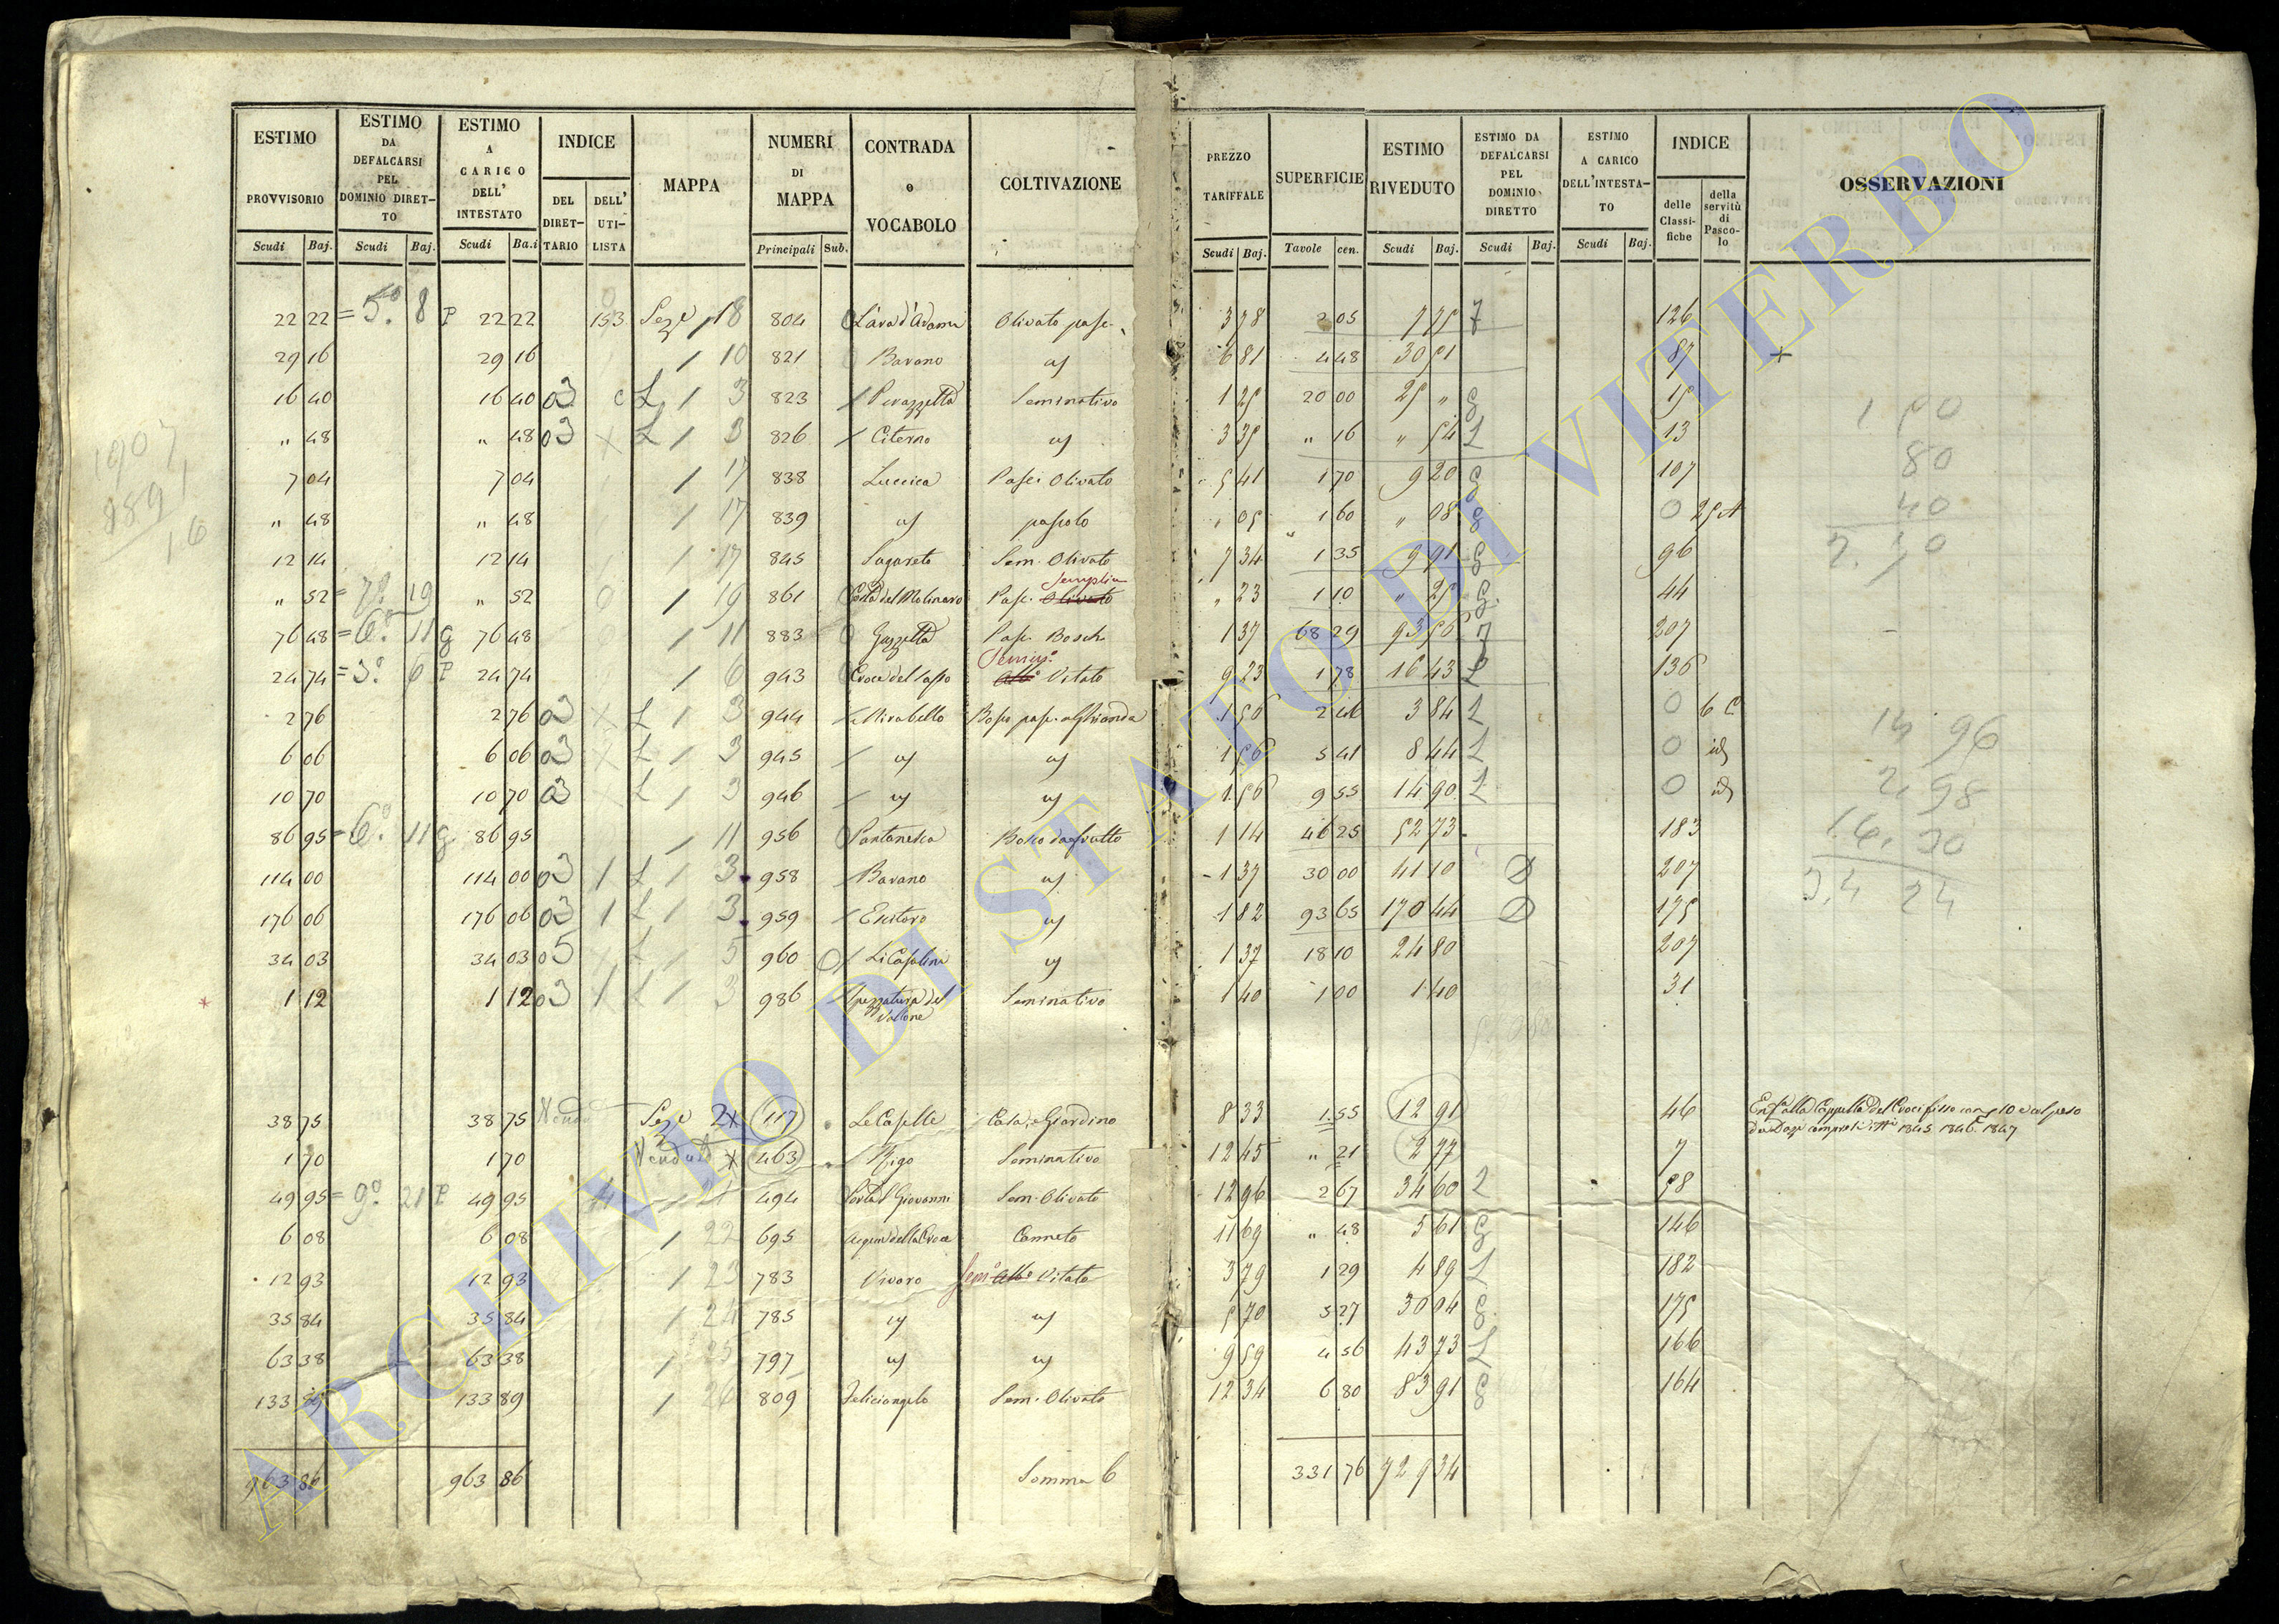 ESTIMO PROVVISORIO | ESTIMO DA DEFALCARSI PEL DOMINIO DIRETTO | ESTIMO A CARICO DELL' INTESTATO | INDICE | MAPPA | NUMERI DI MAPPA | CONTRADA o VOCABOLO | COLTIVAZIONE | PREZZO TARIFFALE | SUPERFICIE | ESTIMO RIVEDUTO | ESTIMO DA DEFALCARSI PEL DOMINIO DIRETTO | ESTIMO A CARICO DELL'INTESTATO | INDICE | OSSERVAZIONI
DEL DIRETTARIO | DELL' UTILISTA | delle Classifiche | della servitù di Pascolo
Scudi | Baj. | Scudi | Baj. | Scudi | Ba.i | Principali | Sub. | Scudi | Baj. | Tavole | cen. | Scudi | Baj. | Scudi | Baj. | Scudi | Baj.
22 22 = 5º 8 P 22 22 153 Sez.e 1 18 804 Olivato pasc. 3 78 2 05 7 75 7 126
29 16 29 16 1 10 821 Bavano 6 81 4 48 30 51 87 +
16 40 16 40 03 L 1 3 823 Perazzetta Seminativo 1 25 20 00 25 " g 15
" 48 " 48 03 × L 1 3 826 Citerno 3 35 " 16 " 54 L 13
7 04 7 04 1 17 838 Luccica Pasc. Olivato 5 41 1 70 9 20 g 107
" 48 " 48 1 17 839 pascolo " 05 1 60 " 08 g 0 25 A
12 14 12 14 1 17 845 Sugareto Sem. Olivato 7 34 1 35 9 91 g 96
" 52 = 7º 19 " 52 0 1 19 861 Costa del Molinaro Pasc. Olivato Semplice " 23 1 10 " 25 g. 44
76 48 = 6º 11 g 76 48 1 11 883 Gazzetta Pasc. Bosch. 1 37 68 29 93 56 7 207
24 74 = 3º 6 P 24 74 1 6 943 Croce del Sasso Vitato 9 23 1 78 16 43 L 136
2 76 2 76 03 × L 1 3 944 Mirabello Bosco pasc. a Ghianda 1 56 2 46 3 84 L 0 6 C
6 06 6 06 03 × L 1 3 945 1 56 5 41 8 44 L 0 id
10 70 10 70 03 × L 1 3 946 1 56 9 55 14 90 L 0 id
86 95 = 6º 11 g 86 95 1 11 956 Pantanesca Bosco da frutto 1 14 46 25 52 73 183
114 00 114 00 03 1 L 1 3 958 Bavano 1 37 30 00 41 10 D 207
176 06 176 06 03 1 L 1 3 959 1 82 93 65 170 44 D 175
34 03 34 03 05 L 1 5 960 Li Casalini 1 37 18 10 24 80 207
1 12 1 12 03 1 L 1 3 986 Spezzatura del Vallone Seminativo 1 40 1 00 1 40 31
38 75 38 75 Sez.e 2 × 117 Le Caselle Casa, e Giardino 8 33 1 55 12 91 46
1 70 1 70 Venduto × 463 Rigo Seminativo 12 45 " 21 2 77 7
49 95 = 9º 21 P 49 95 1 21 494 Porta S. Giovanni Sem. Olivato 12 96 2 67 34 60 L 58
6 08 6 08 1 22 695 Acqua della Croce Canneto 11 69 " 48 5 61 g 146
12 93 12 93 1 23 783 Vivaro Vitato 3 79 1 29 4 89 L 182
35 84 35 84 1 24 785 5 70 5 27 30 04 g 175
63 38 63 38 1 25 797 9 59 4 56 43 73 L 166
133 89 133 89 1 26 809 Feliciangelo Sem. Olivato 12 34 6 80 83 91 g 164
963 86 963 86 Somma 6 331 76 729 34
alla Cappella del Crocifisso
1845. 1846. 1847
1 50
80
40
14 96
2. 98
16. 30
34 24
ARCHIVIO DI STATO DI VITERBO